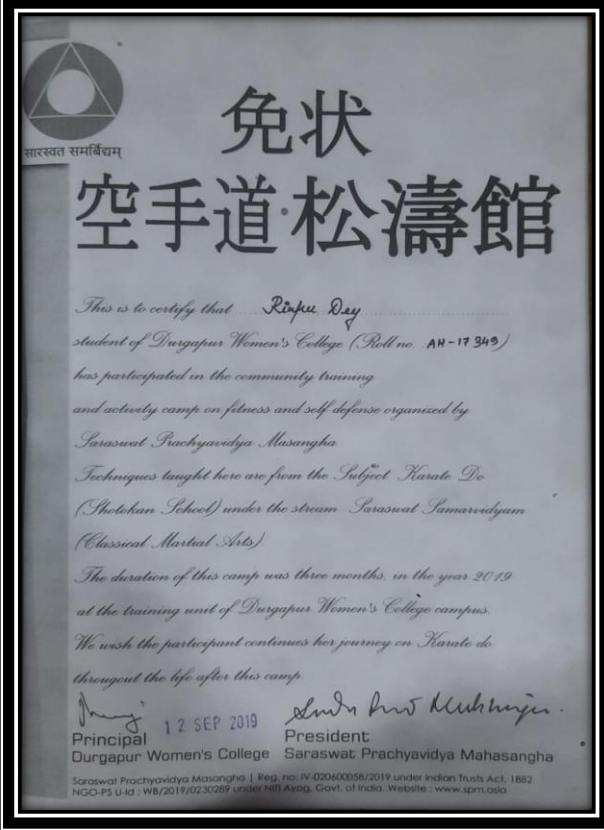 सारस्वत समर्बिद्यम्
免状
空手道·松濤館
This is to certify that Rinpu Dey
student of Durgapur Women's College (Roll no. AH-17 349)
has participated in the community training
and activity camp on fitness and self defense organized by
Saraswat Prachyavidya Masangha
Techniques taught here are from the Subject Karate Do
(Shotokan School) under the stream Saraswat Samarvidyam
(Classical Martial Arts)
The duration of this camp was three months, in the year 2019
at the training unit of Durgapur Women's College campus.
We wish the participant continues her journey on Karate do
througout the life after this camp
12 SEP 2019
Principal
Durgapur Women's College
President
Saraswat Prachyavidya Mahasangha
Saraswat Prachyavidya Masongha | Reg. no: IV-020600058/2019 under Indian Trusts Act, 1882
NGO-PS U-Id : WB/2019/0230289 under Niti Ayog, Govt. of India. Website : www.spm.asia